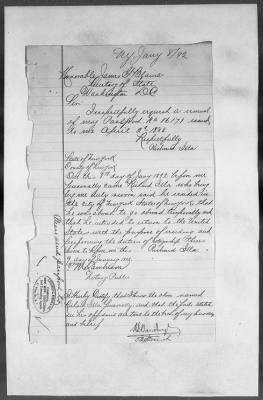 NY. Jany 8/92
Honorable James G Blaine
Secretary of State
Washington D.C
Sir
I respectfully request a renewal
of my Passport, No 16171 issued
to me April 27, 1888
Respectfully
Richard
State of New York
County of New York
On this 9th day of Jany 1892 before me
personally came Richard who being
by me duly sworn said he resided in
the city of New York State of New York, that
he was about to go abroad temporarily and
that he intended to return to the United
States with the purpose of residing and
performing the duties of citizenship therein
Sworn to before me this Richard
9 day of January 1892
Notary Public
I hereby Certify, that I know the above named
Richard personally, and that the facts stated
in his affidavit are true to the best of my knowledge
and belief